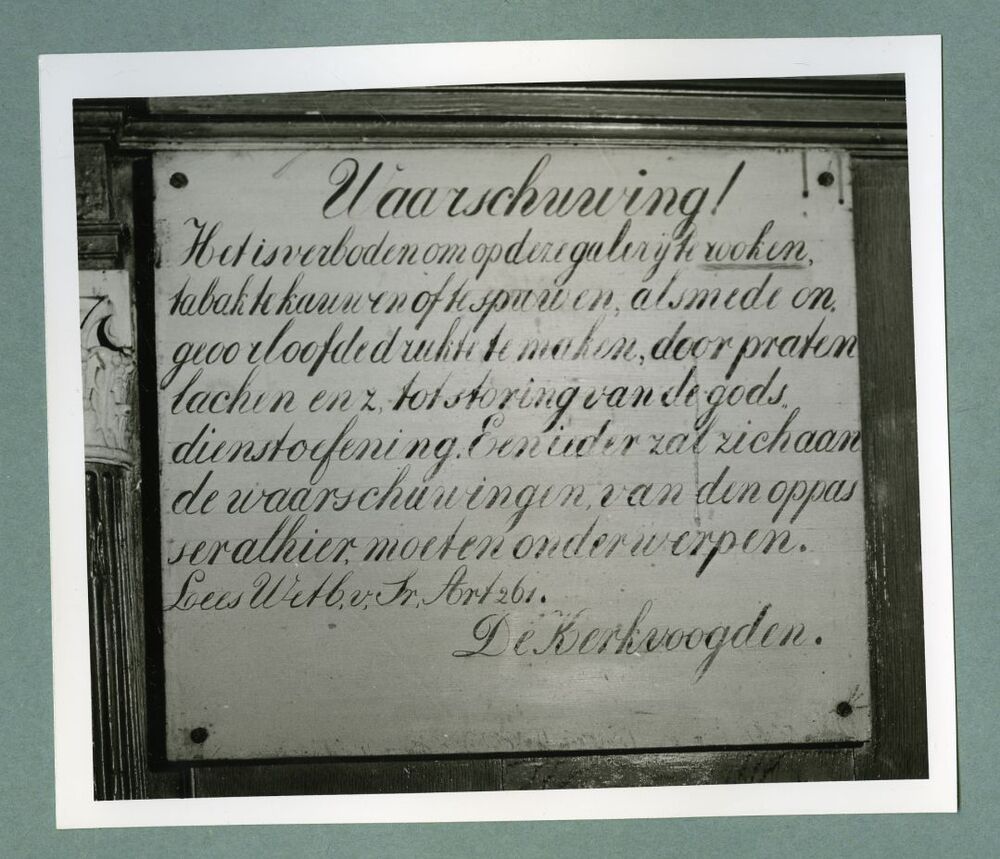 Waarschuwing!
Het is verboden om op deze galerij te rooken,
tabak te kauwen of te spuwen, alsmede on,
geoorloofde drukte te maken, door praten
lachen enz, tot storing van de gods,
dienstoefening. Een ieder zal zich aan
de waarschuwingen, van den oppas
ser alhier, moeten onderwerpen.
Lees Wetb. v. Sr. Art 261.
De Kerkvoogden.